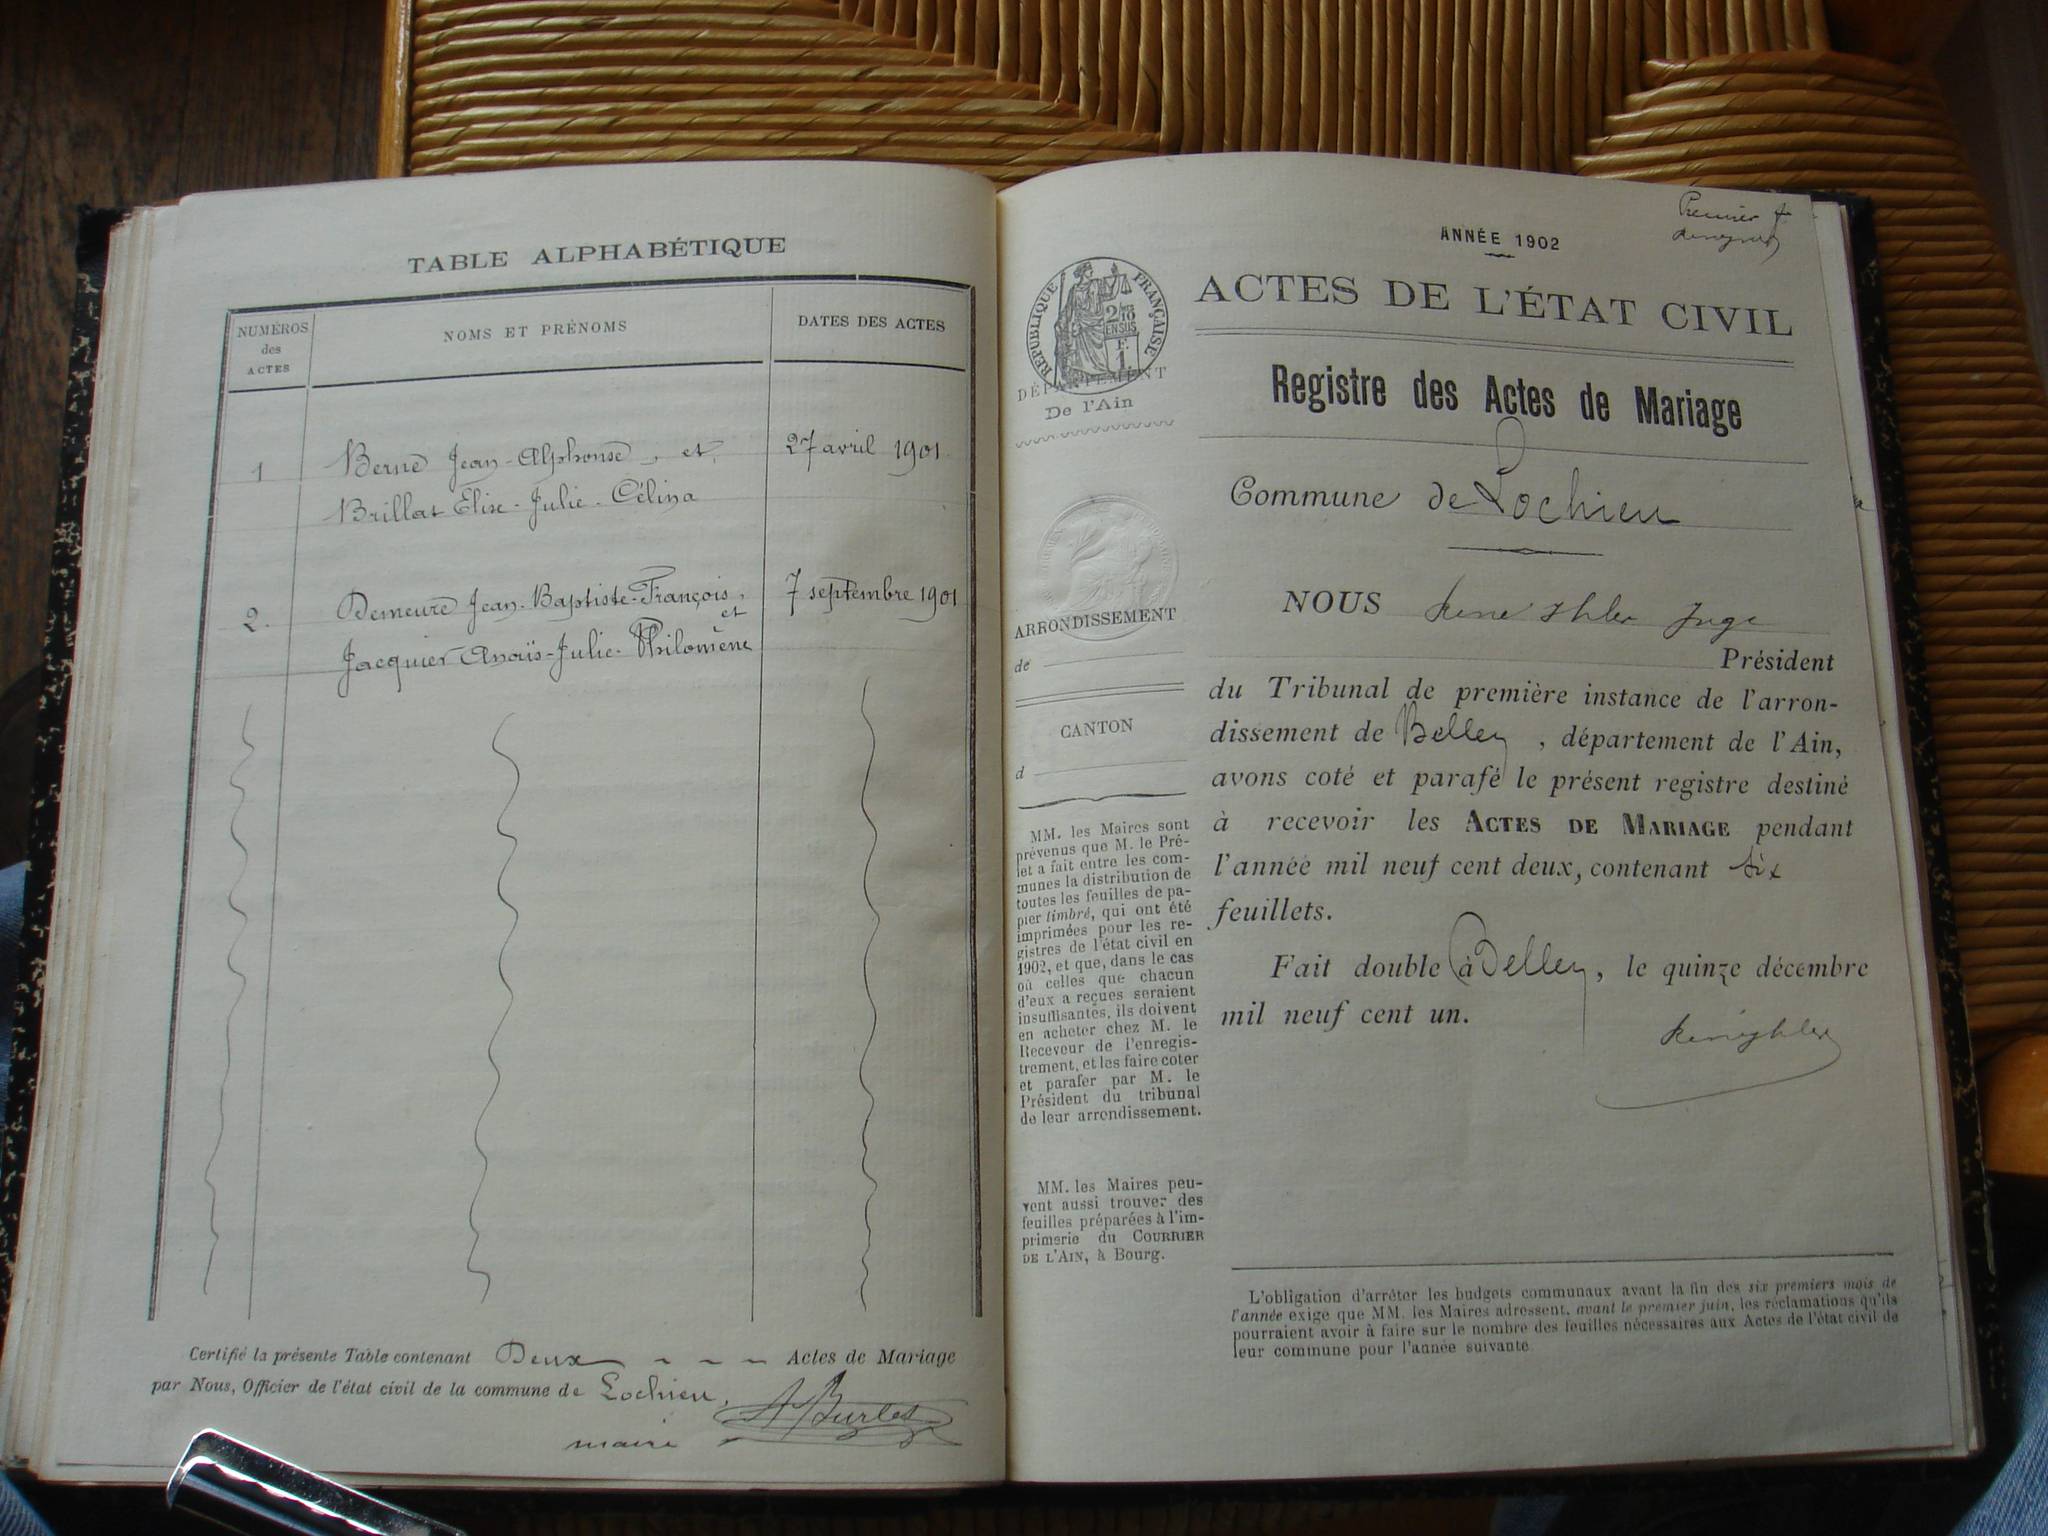 TABLE ALPHABÉTIQUE
NUMÉROS
des
ACTES
NOMS ET PRÉNOMS
DATES DES ACTES
1
Berne Jean-Alphonse, et
27 avril 1901
Brillat Elise-Julie-Célina
2.
Demeure Jean-Baptiste-François,
et
7 septembre 1901
Jacquier Anaïs-Julie-Philomène
Certifié la présente Table contenant Deux Actes de Mariage
par Nous, Officier de l'état civil de la commune de Lochieu,
maire
A Burlet
Premier
ANNÉE 1902
ACTES DE L'ÉTAT CIVIL
Registre des Actes de Mariage
Commune de Lochieu
RÉPUBLIQUE FRANÇAISE
2/10
EN SUS
F.
1
DÉPARTEMENT
De l'Ain
ARRONDISSEMENT
de
CANTON
d
MM. les Maires sont
prévenus que M. le Pré-
fet a fait entre les com-
munes la distribution de
toutes les feuilles de pa-
pier timbré, qui ont été
imprimées pour les re-
gistres de l'état civil en
1902, et que, dans le cas
où celles que chacun
d'eux a reçues seraient
insuffisantes, ils doivent
en acheter chez M. le
Receveur de l'enregis-
trement, et les faire coter
et parafer par M. le
Président du tribunal
de leur arrondissement.
MM. les Maires peu-
vent aussi trouver des
feuilles préparées à l'im-
primerie du COURRIER
DE L'AIN, à Bourg.
NOUS Juge
Président
du Tribunal de première instance de l'arron-
dissement de Belley, département de l'Ain,
avons coté et parafé le présent registre destiné
à recevoir les ACTES DE MARIAGE pendant
l'année mil neuf cent deux, contenant six
feuillets.
Fait double à Belley, le quinze décembre
mil neuf cent un.
L'obligation d'arrêter les budgets communaux avant la fin des six premiers mois de
l'année exige que MM. les Maires adressent, avant le premier juin, les réclamations qu'ils
pourraient avoir à faire sur le nombre des feuilles nécessaires aux Actes de l'état civil de
leur commune pour l'année suivante